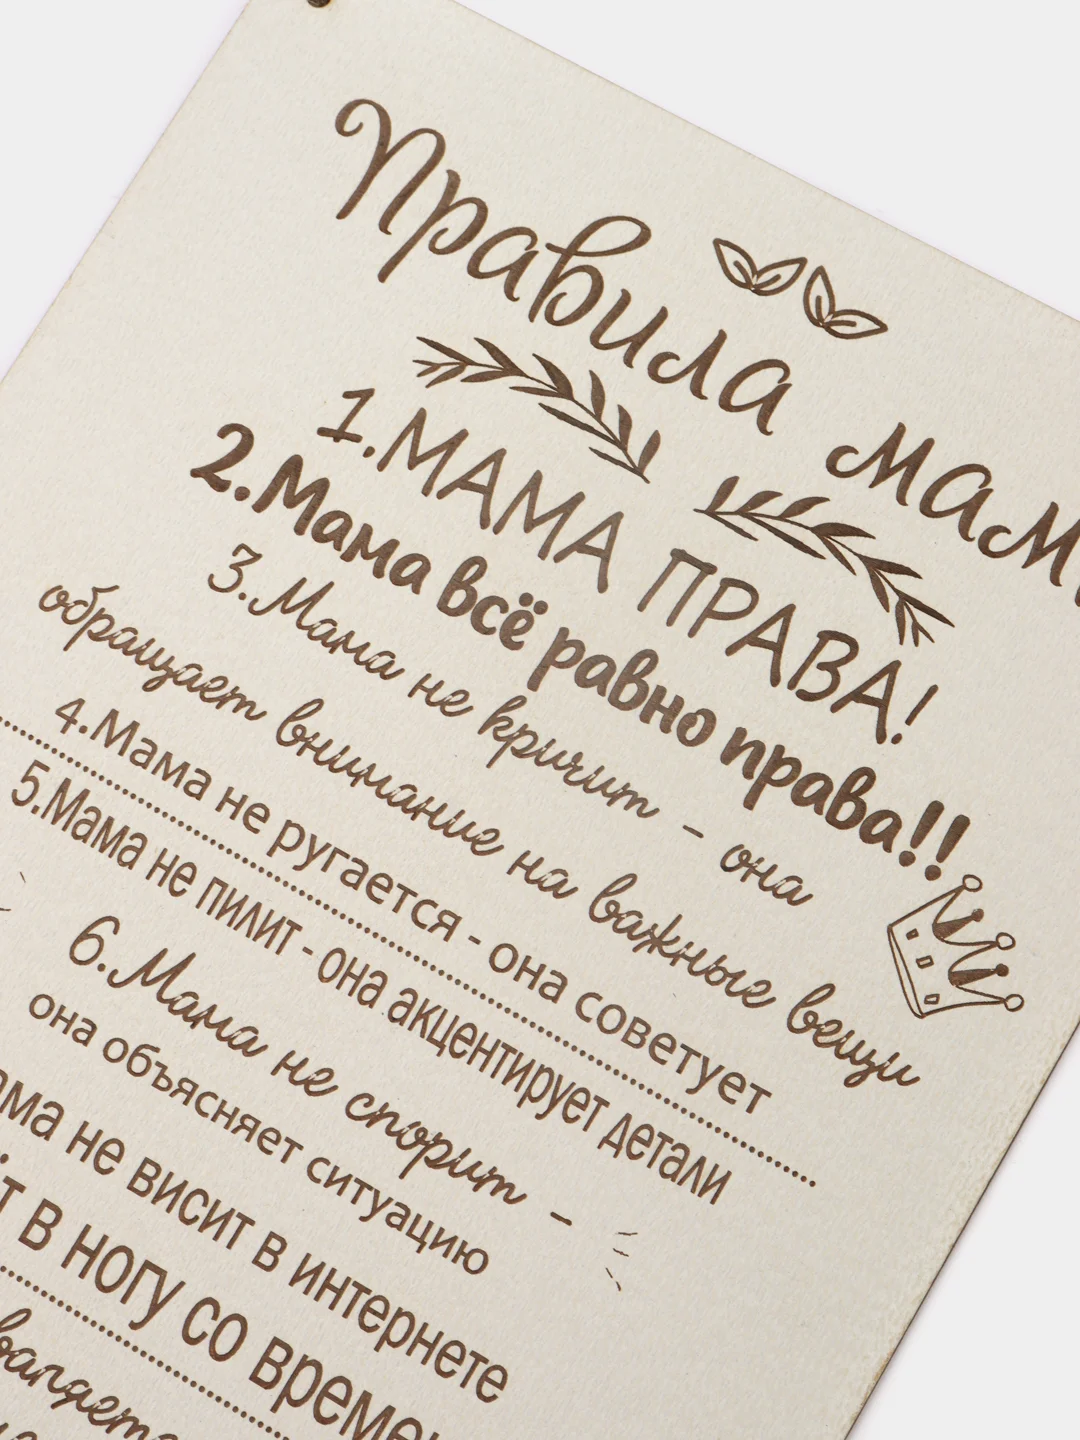 Правила мам
1.МАМА ПРАВА!
2.Мама всё равно права!!
3.Мама не кричит - она
обращает внимание на важные вещи
4.Мама не ругается - она советует
5.Мама не пилит - она акцентирует детали
6.Мама не спорит -
она объясняет ситуацию
ама не висит в интернете
т в ногу со времен